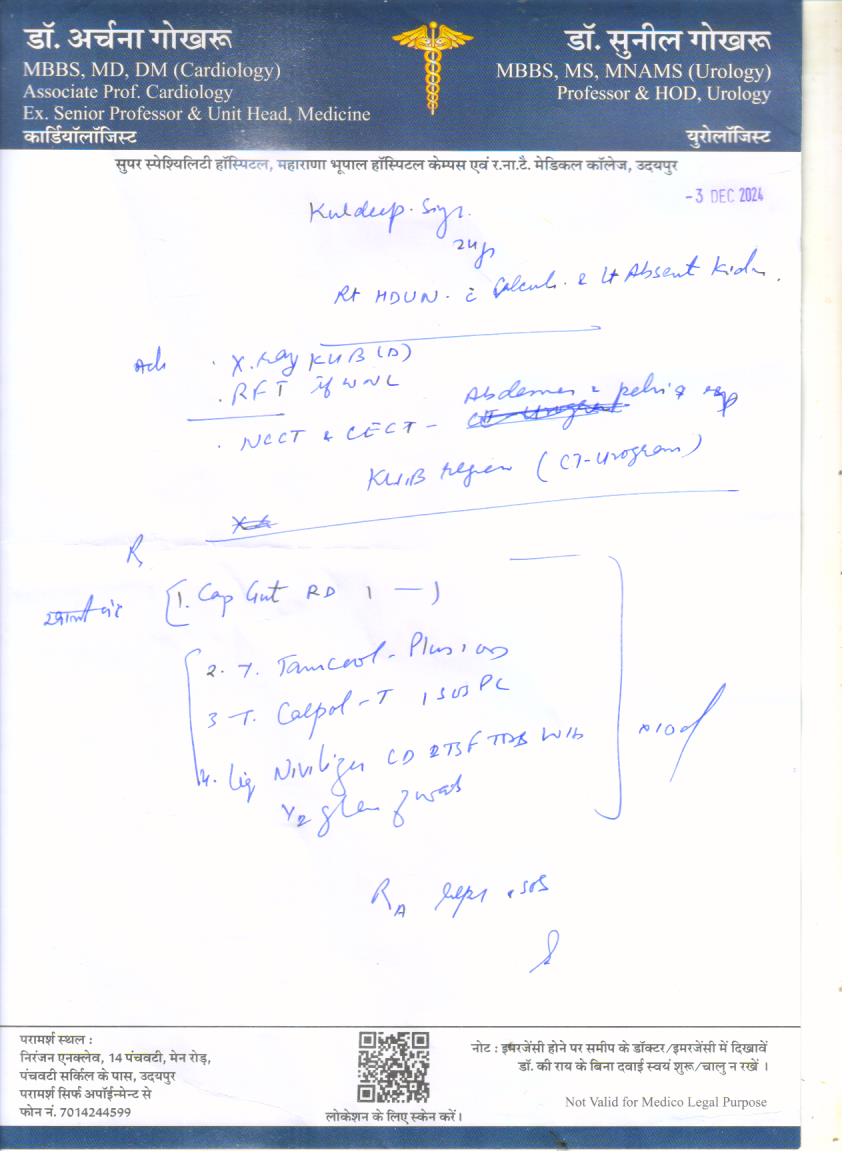 डॉ. अर्चना गोखरू
MBBS, MD, DM (Cardiology)
Associate Prof. Cardiology
Ex. Senior Professor & Unit Head, Medicine
कार्डियॉलॉजिस्ट
डॉ. सुनील गोखरू
MBBS, MS, MNAMS (Urology)
Professor & HOD, Urology
युरोलॉजिस्ट
सुपर स्पेश्यिलिटी हॉस्पिटल, महाराणा भूपाल हॉस्पिटल केम्पस एवं र.ना.टै. मेडिकल कॉलेज, उदयपुर
-3 DEC 2024
Kuldeep
Rt HDUN c Calculi & Lt Absent
X.Ray KUB (D)
RFT if WNL
NCCT & CECT - Abdomen & pelvis
KUB region (CT-Urogram)
R
1. Cap Gut RD 1
2. T.
3 T. Calpol-T 1 SOS PC
4. Liq CD
1/2 glass of water
SOS
परामर्श स्थल :
निरंजन एनक्लेव, 14 पंचवटी, मेन रोड़,
पंचवटी सर्किल के पास, उदयपुर
परामर्श सिर्फ अपॉईन्मेन्ट से
फोन नं. 7014244599
लोकेशन के लिए स्केन करें।
नोट : इमरजेंसी होने पर समीप के डॉक्टर/इमरजेंसी में दिखावें
डॉ. की राय के बिना दवाई स्वयं शुरू/चालु न रखें ।
Not Valid for Medico Legal Purpose